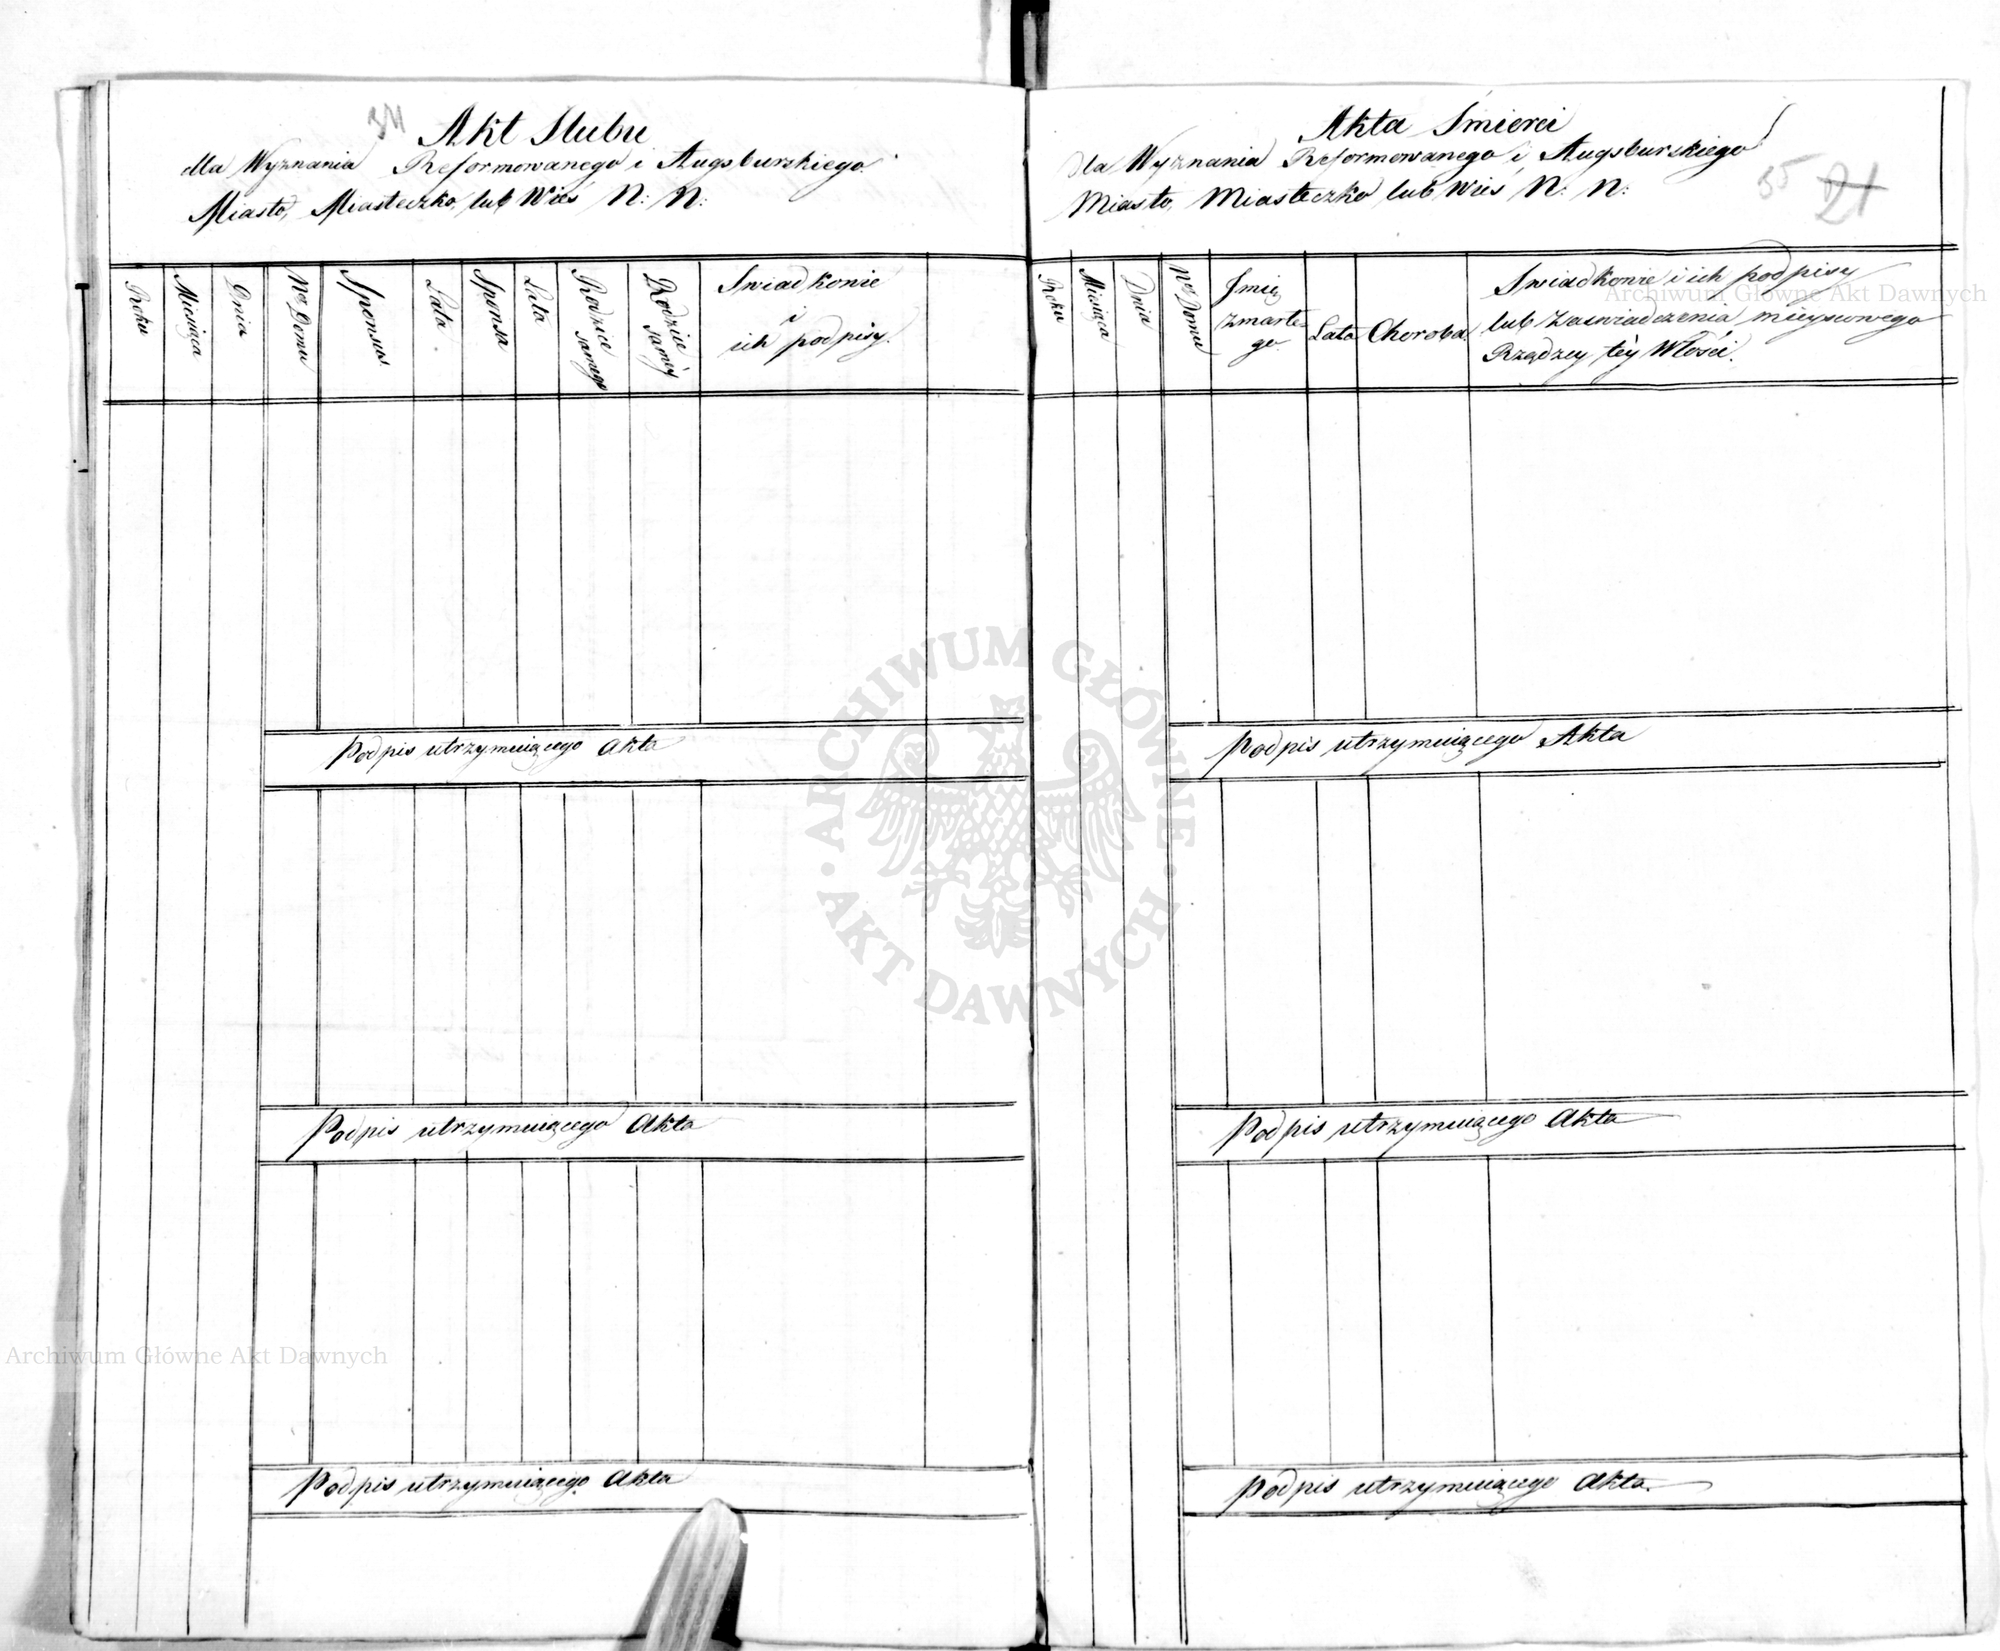 34
Akt Slubu
dla Wyznania Reformowanego i Augsburskiego.
Miasto, Miasteczko lub Wieś N: N:
Roku
Miesiąca
Dnia
Nro Domu
Sponsus
Lata
Sponsa
Lata
Rodzice
samego
Rodzice
samey
Swiadkowie
i
ich podpisy.
Podpis utrzymuiącego Akta
Podpis utrzymuiącego Akta
Podpis utrzymuiącego Akta
Akta Śmierci
dla Wyznania Reformowanego i Augsburskiego
Miasto, Miasteczko lub Wieś N: N:
35 21
Roku
Miesiąca
Dnia
Nro Domu
Imię
zmarłe-
go
Lata
Choroba
Swiadkowie i ich podpisy
lub Zaswiadczenia mieyscowego
Rządzcy téy Włości.
Podpis utrzymuiącego Akta
Podpis utrzymuiącego Akta
Podpis utrzymuiącego Akta.
Archiwum Główne Akt Dawnych
ARCHIWUM GŁÓWNE · AKT DAWNYCH ·
Archiwum Główne Akt Dawnych